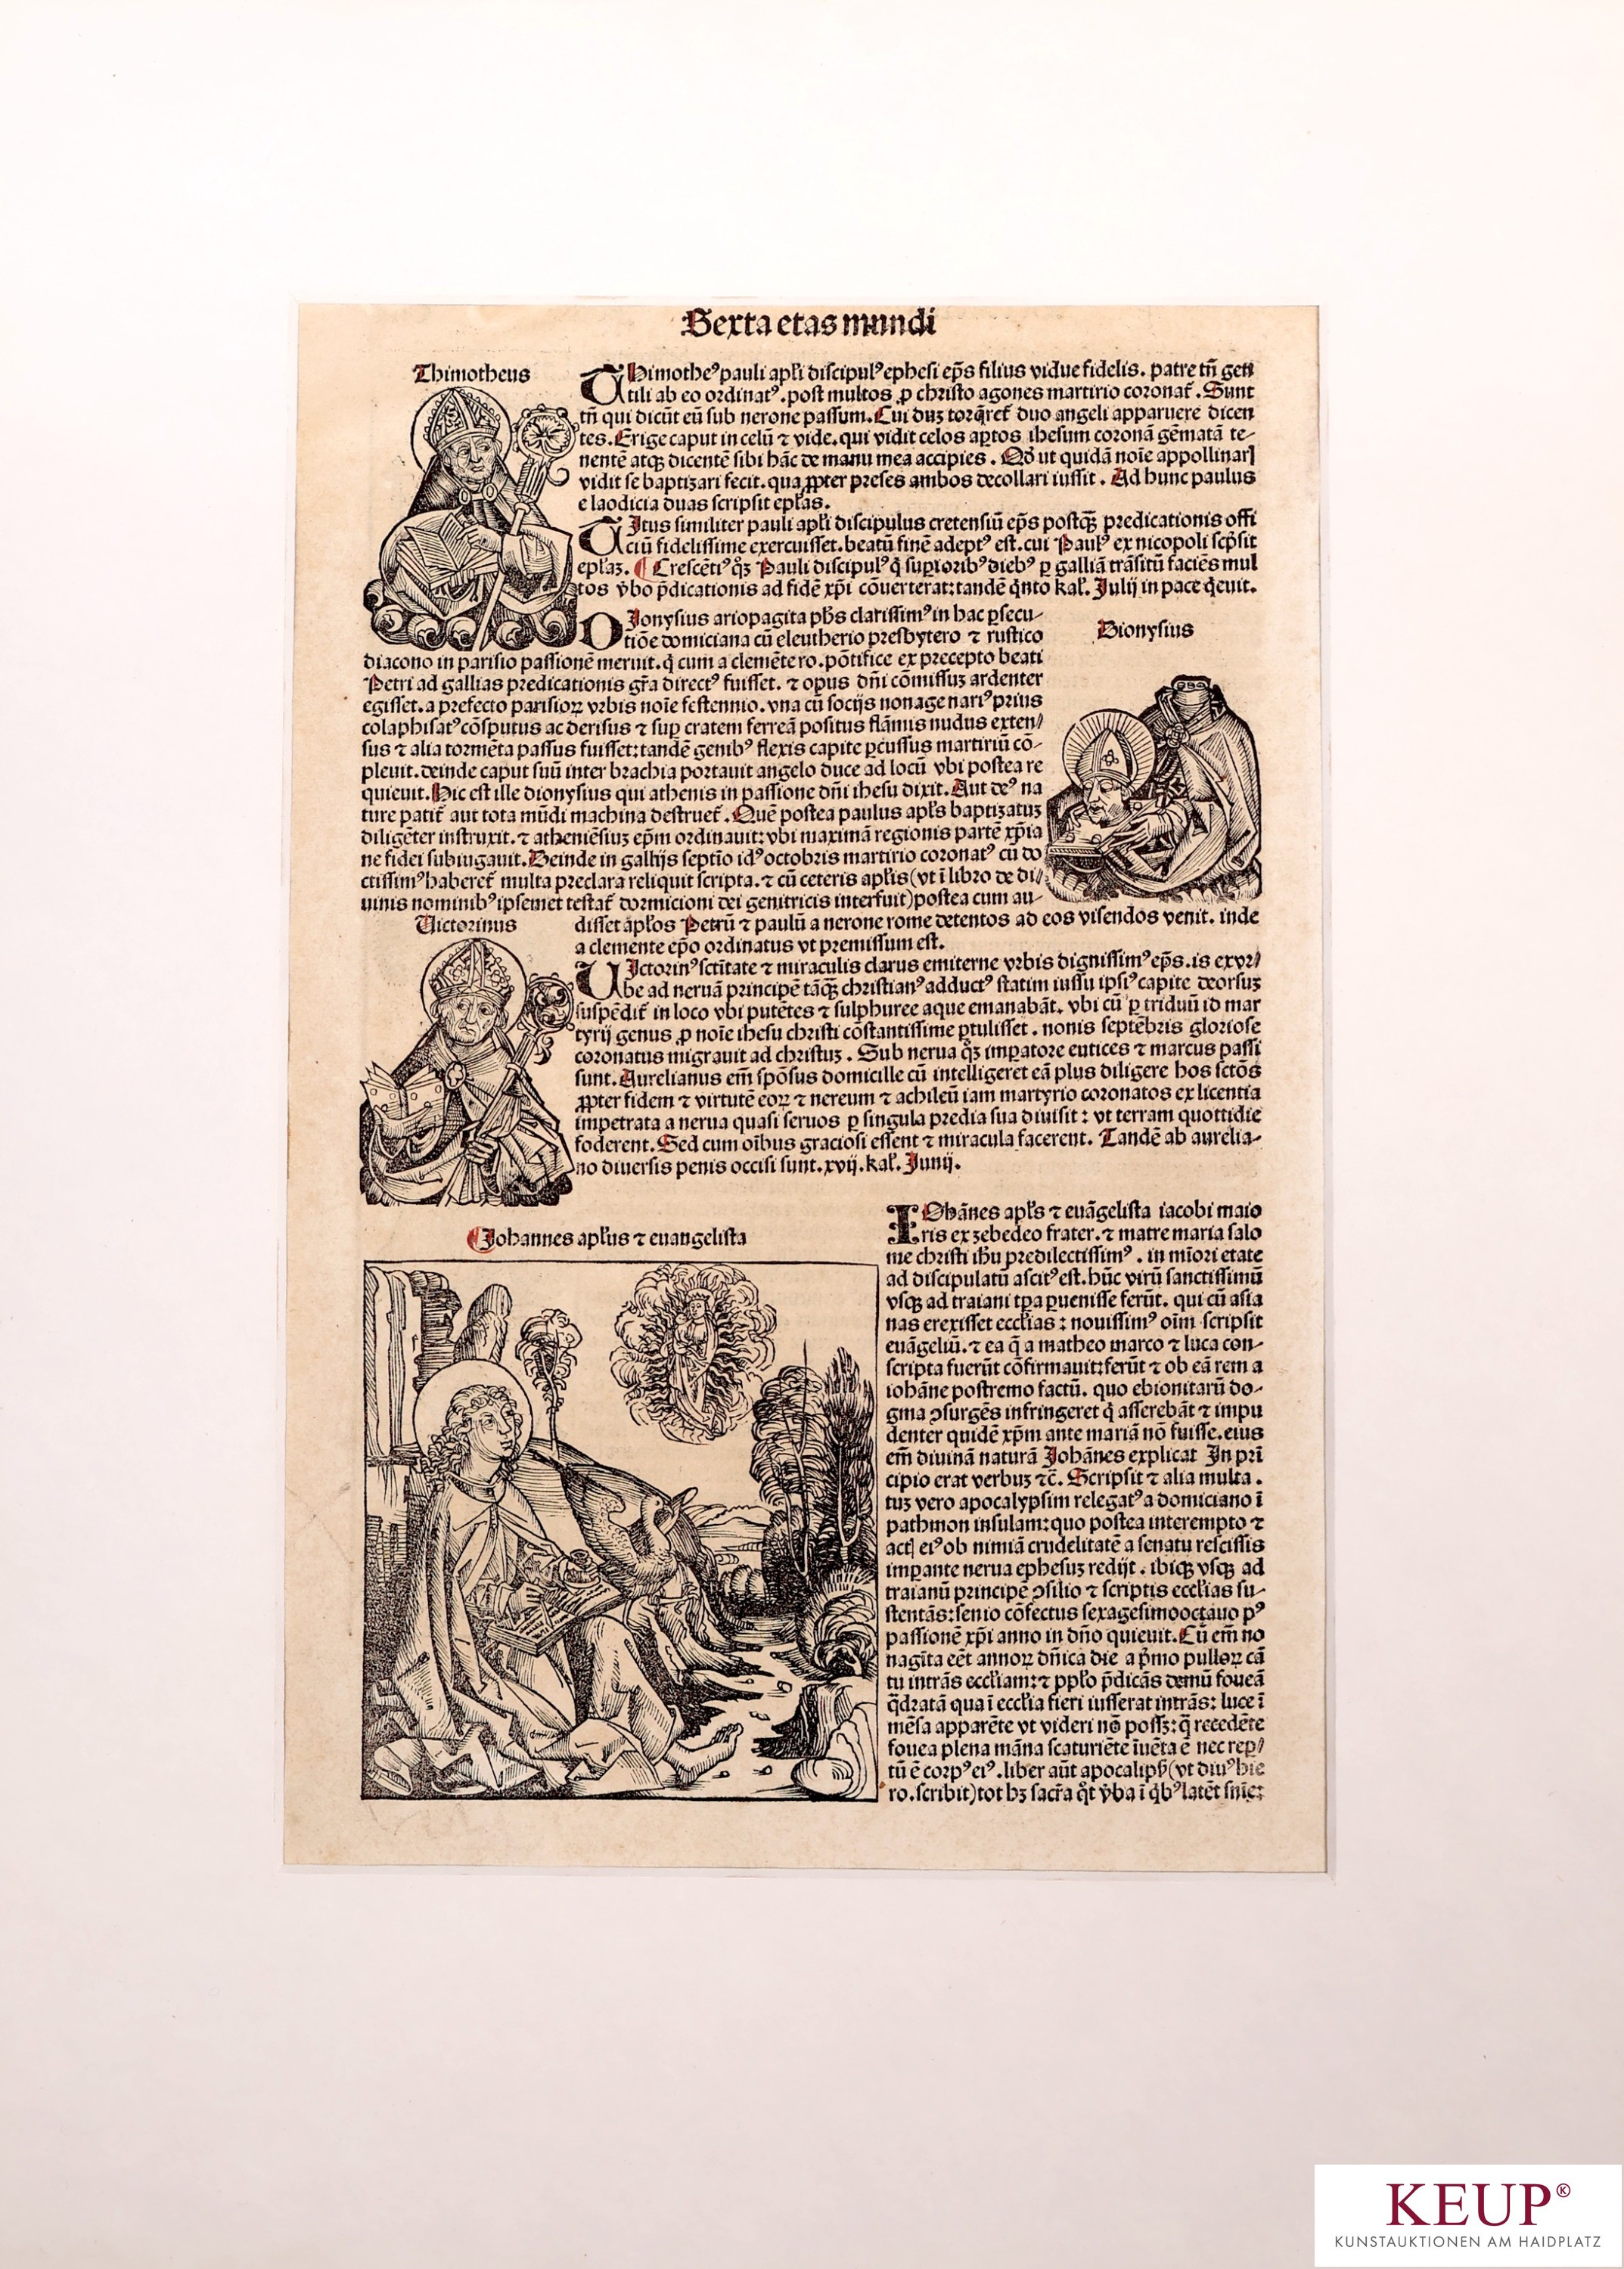 Sexta etas mundi
Thimotheus
THimothe⁹ pauli apl̃i discipul⁹ ephesi ep̃s filius vidue fidelis. patre tñ gen
tili ab eo ordinat⁹. post multos ꝓ christo agones martirio coronat̃. Sunt
tñ qui dicũt eũ sub nerone passum. Cui duꝫ torq̃ret̃ duo angeli apparuere dicen
tes. Erige caput in celũ ⁊ vide. qui vidit celos aꝑtos ihesum coronã gẽmatã te-
nentẽ atqꝫ dicentẽ sibi hãc de manu mea accipies. Qd̾ ut quidã noĩe appollinar
vidit se baptizari fecit. qua ꝓpter preses ambos decollari iussit. Ad hunc paulus
e laodicia duas scripsit epl̃as.
TItus similiter pauli apl̃i discipulus cretensiũ ep̃s postqꝫ̃ predicationis offi
ciũ fidelissime exercuisset. beatũ finẽ adept⁹ est. cui Paul⁹ ex nicopoli scp̃sit
epl̃aꝫ. ¶ Crescẽti⁹ qꝫ̊ Pauli discipul⁹ q̇ suꝑiorib⁹ dieb⁹ ꝑ galliã trãsitũ faciẽs mul
tos v̾bo p̃dicationis ad fidẽ xp̃i cõuerterat: tandẽ q̇nto kal̃. Julij in pace q̇euit.
DIonysius ariopagita ph̃s clarissim⁹ in hac ꝑsecu-
tiõe domiciana cũ eleutherio presbytero ⁊ rustico
Dionysius
diacono in parisio passionẽ meruit. q̇ cum a clemẽte ro. põtifice ex precepto beati
Petri ad gallias predicationis gr̃a direct⁹ fuisset. ⁊ opus dñi cõmissuꝫ ardenter
egisset. a prefecto parisioꝝ vrbis noĩe festennio. vna cũ socijs nonagenari⁹ prius
colaphisat⁹ cõsputus ac derisus ⁊ suꝑ cratem ferreã positus flãmis nudus exten/
sus ⁊ alia tormẽta passus fuisset: tandẽ genib⁹ flexis capite ꝑcussus martiriũ cõ-
pleuit. deinde caput suũ inter brachia portauit angelo duce ad locũ vbi postea re
quieuit. Hic est ille dionysius qui athenis in passione dñi ihesu dixit. Aut de⁹ na
ture patit̃ aut tota mũdi machina destruet̃. Quẽ postea paulus apl̃s baptizatuꝫ
diligẽter instruxit. ⁊ atheniẽsiuꝫ ep̃m ordinauit: vbi maximã regionis partẽ xp̃ia
ne fidei subiugauit. Deinde in gallijs septĩo id⁹ octobris martirio coronat⁹ cũ do
ctissim⁹ haberet̃ multa preclara reliquit scripta. ⁊ cũ ceteris apl̃is (vt ĩ libro de di/
uinis nominib⁹ ipsemet testat̃ dormicioni dei genitricis interfuit) postea cum au-
Victorinus
disset apl̃os Petrũ ⁊ paulũ a nerone rome detentos ad eos visendos venit. inde
a clemente ep̃o ordinatus vt premissum est.
VIctorin⁹ sctĩtate ⁊ miraculis clarus emiterne vrbis dignissim⁹ ep̃s. is ex vr/
be ad neruã principẽ tãqꝫ̃ christian⁹ adduct⁹ statim iussu ipsi⁹ capite deorsuꝫ
suspẽdit̃ in loco vbi putẽtes ⁊ sulphuree aque emanabãt. vbi cũ ꝑ triduũ id mar
tyrij genus ꝓ noĩe ihesu christi cõstantissime ꝑtulisset. nonis septẽbris gloriose
coronatus migrauit ad christuꝫ. Sub nerua qꝫ̊ imꝑatore eutices ⁊ marcus passi
sunt. Aurelianus em̃ spõsus domicille cũ intelligeret eã plus diligere hos sctõs
ꝓpter fidem ⁊ virtutẽ eoꝝ ⁊ nereum ⁊ achileũ iam martyrio coronatos ex licentia
impetrata a nerua quasi seruos ꝑ singula predia sua diuisit: vt terram quottidie
foderent. Sed cum oĩbus graciosi essent ⁊ miracula facerent. Tandẽ ab aurelia-
no diuersis penis occisi sunt. xvij. kal̃. Junij.
¶Johannes apl̃us ⁊ euangelista
IOhãnes apl̃s ⁊ euãgelista iacobi maio
ris ex zebedeo frater. ⁊ matre maria salo
me christi ihũ predilectissim⁹. in mĩori etate
ad discipulatũ ascit⁹ est. hũc virũ sanctissimũ
vsqꝫ ad traiani tꝑa ꝑuenisse ferũt. qui cũ asia
nas erexisset eccl̃ias: nouissim⁹ oĩm scripsit
euãgeliũ. ⁊ ea q̃ a matheo marco ⁊ luca con-
scripta fuerũt cõfirmauit: ferũt ⁊ ob eã rem a
iohãne postremo factũ. quo ebionitarũ do-
gma ꝯsurgẽs infringeret q̇ asserebãt ⁊ impu
denter quidẽ xp̃m ante mariã nõ fuisse. eius
em̃ diuinã naturã Johãnes explicat In pri
cipio erat verbuꝫ ⁊c̃. Scripsit ⁊ alia multa.
tuꝫ vero apocalypsim relegat⁹ a domiciano ĩ
pathmon insulam: quo postea interempto ⁊
act ei⁹ ob nimiã crudelitatẽ a senatu rescissis
imꝑante nerua ephesuꝫ redijt. ibiqꝫ vsqꝫ ad
traianũ principẽ ꝯsilio ⁊ scriptis eccl̃ias su-
stentãs: senio cõfectus sexagesimooctauo p⁹
passionẽ xp̃i anno in dño quieuit. Cũ em̃ no
nagĩta eẽt annoꝝ dñica die a p̾mo pulloꝝ cã
tu intrãs eccl̃iam: ⁊ ppl̃o p̃dicãs demũ foueã
q̃dratã qua ĩ eccl̃ia fieri iusserat intrãs: luce ĩ
mẽsa apparẽte vt videri nõ possꝫ: q̃ recedẽte
fouea plena mãna scaturiẽte ĩuẽta ẽ nec reꝑ/
tũ ẽ corp⁹ ei⁹. liber aũt apocalip̃s (vt diu⁹ hie
ro. scribit) tot hꝫ sacr̃a q̊t v̾ba ĩ q̇b⁹ latẽt
KEUP®
KUNSTAUKTIONEN AM HAIDPLATZ